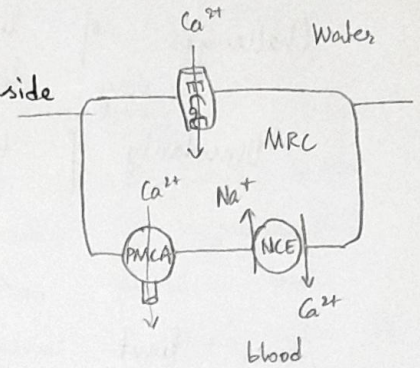 Ca²⁺
Water
side
ECaC
MRC
Ca²⁺
Na⁺
PMCA
NCE
Ca²⁺
blood